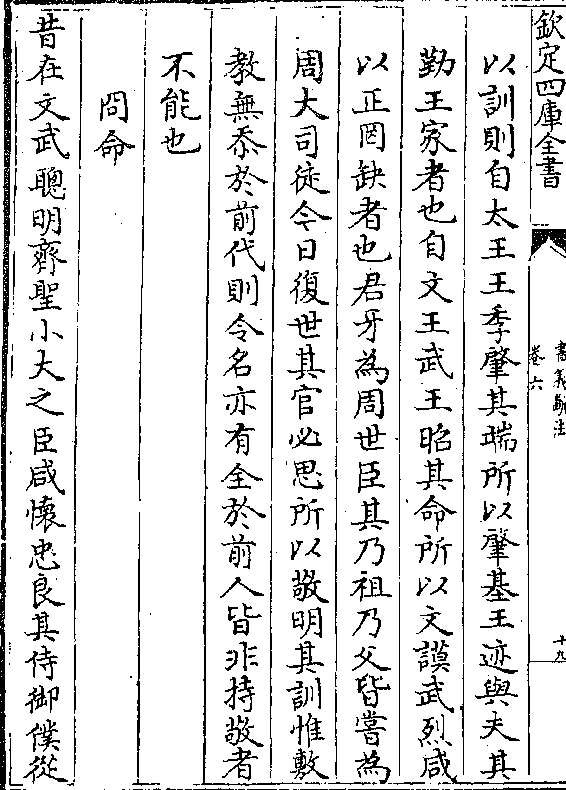 欽定四庫全書
書義斷法
卷六
十九
以訓則自太王王季肇其端所以肇基王迹與夫其
勤王家者也自文王武王昭其命所以文謨武烈咸
以正罔缺者也君牙為周世臣其乃祖乃父皆嘗為
周大司徒今日復世其官必思所以敬明其訓惟敷
教無忝於前代則令名亦有全於前人皆非持敬者
不能也
冏命
昔在文武聰明齊聖小大之臣咸懷忠良其侍御僕從